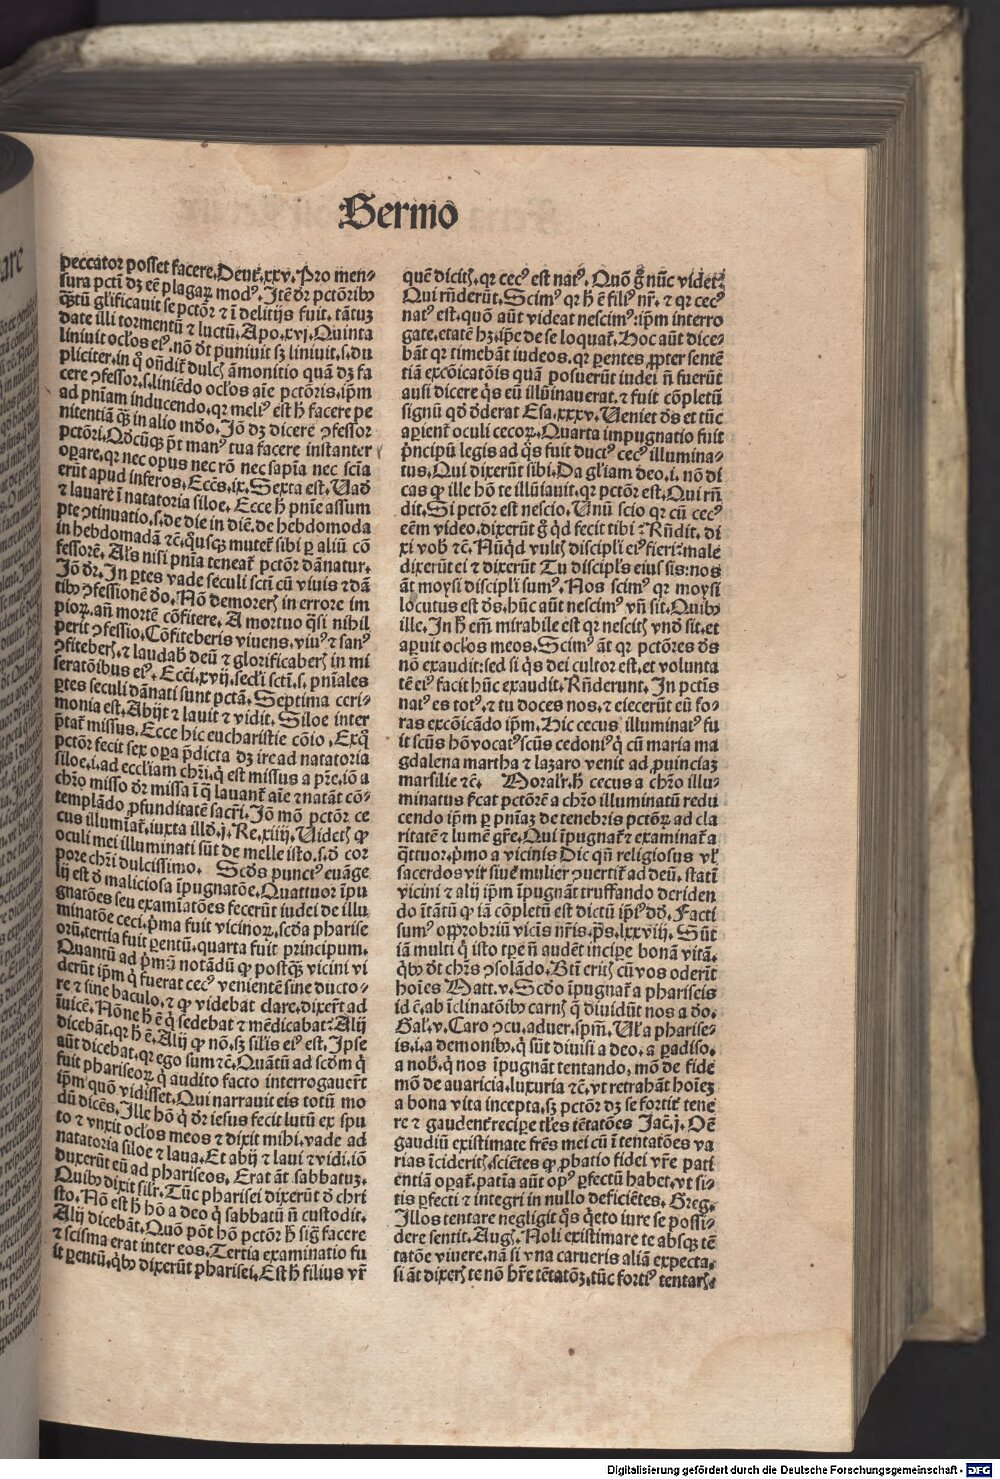 Sermo
peccator posset facere. Deut̃. xxv. Pro men-
sura pcti dꝫ eē plagaꝝ modꝰ. Itē dr̄ pctōribꝰ
q̄ꝫtū gl̄ificauit se pctōr ⁊ ī delitijs fuit. tātuꝫ
date illi tormentū ⁊ luctū. Apo. xvj. Quinta
liniuit ocl̄os eiꝰ. nō dt̄ puniuit sꝫ liniuit. s. du
pliciter. in q̊ oñdit̃ dulcꝭ āmonitio quā dꝫ fa
cere ꝯfessor. s. liniēdo ocl̄os aīe pctōris. ip̄m
ad pn̄iam inducendo. qꝛ meliꝰ est ħ facere pe
nitentiā qꝫ in alio mdō. Iō dꝫ dicere ꝯfessor
pctōri. Qd̄cūqꝫ pt̄ manꝰ tua facere instanter
oꝑare. qꝛ nec opus nec rō nec sapīa nec scīa
erūt apud inferos. Eccs̄. ix. Sexta est. Uad
⁊ lauare ī natatoria siloe. Ecce ħ pn̄ie assum
pte ꝯtinuatio. s. de die in diē. de hebdomoda
in hebdomadā ⁊c̄. qͥusqꝫ mutet̃ sibi ꝑ aliū cō
fessorē. Al̄s nisi pn̄ia teneat̃ pctōr dānatur.
Iō dr̄. In ꝑtes vade seculi sctī cū viuis ⁊ dā
tibꝰ ꝯfessionē do. Nō demorerꝭ in errore im
pioꝝ. an̄ mortē cōfitere. A mortuo q̄si nihil
perit ꝯfessio. Cōfiteberis viuens. viuꝰ ⁊ sanꝰ
ꝯfiteberꝭ. ⁊ laudabꝭ deū ⁊ glorificaberꝭ in mi
seratōibus eiꝰ. Ecci. xvij. secl̄i sctī. s. pn̄iales
ꝑtes seculi dānati sunt pctā. Septima ceri-
monia est. Abijt ⁊ lauit ⁊ vidit. Siloe inter
p̄tat̃ missus. Ecce hic eucharistie cōio. Exq̊
pctōr fecit sex oꝑa p̄dicta dꝫ ire ad natatoria
siloe. i. ad eccl̄iam chr̄i. q̄ est missus a pr̄e. iō a
chr̄o misso dr̄ missa ī q̊ lauant̃ aīe ⁊ natāt cō-
templādo ꝓfunditatē sacr̄i. Iō mō pctōr ce
cus illumīat̃. iuxta illd̄. j. Re. xiiij. Uidetꝭ ꝙ
oculi mei illuminati sūt de melle isto. s. d̄ cor
pore chr̄i dulcissimo. Scd̄s punctꝰ euāge
lij est d̄ maliciosa īpugnatōe. Quattuor īpu
gnatōes seu examīatōes fecerūt iudei de illu
minatōe ceci. p̄ma fuit vicinoꝝ. scd̄a pharise
orū. tertia fuit ꝑentū. quarta fuit principum.
Quantū ad p̄mū notādū ꝙ postqꝫ vicini vi
derūt ip̄m q̊ fuerat cecꝰ venientē sine ducto-
re ⁊ sine baculo. ⁊ ꝙ videbat clare. dixer̄t ad
īuicē. Nōne ħ ē q̊ sedebat ⁊ mēdicabat: Alij
dicebāt. qꝛ ħ ē. Alij ꝙ nō. sꝫ silīs eiꝰ est. Ipse
aūt dicebat. qꝛ ego sum ⁊c̄. Quātū ad scd̄m q̊
fuit phariseoꝝ. q̊ audito facto interrogauer̄t
ip̄m quō vidisset. Qui narrauit eis totū mo
dū dicēs. Ille hō q̊ dr̄ iesus fecit lutū ex spu
to ⁊ vnxit ocl̄os meos ⁊ dixit mihi. vade ad
natatoria siloe ⁊ laua. Et abij ⁊ laui ⁊ vidi. iō
duxerūt eū ad phariseos. Erat āt sabbatuꝫ.
Quibꝰ dixit silr̄. Tūc pharisei dixerūt d̄ chri
sto. Nō est ħ hō a deo q̊ sabbatū n̄ custodit.
Alij dicebāt. Quō pōt hō pctōr ħ sig̃ facere
⁊ scisma erat inter eos. Tertia examinatio fu
it ꝑentū. qͥbꝰ dixerūt pharisei. Est ħ filius vr̄
quē dicitꝭ. qꝛ cecꝰ est natꝰ. Quō g̊ nūc videt:
Qui rn̄derūt. Scimꝰ qꝛ ħ ē filiꝰ nr̄. ⁊ qꝛ cecꝰ
natꝰ est. quō aūt videat nescimꝰ: ip̄m interro
gate. etatē hꝫ. ip̄e de se loquat̃. Hoc aūt dice-
bāt qꝛ timebāt iudeos. qꝛ ꝑentes ꝓpter sentē
tiā excōicatōis quā posuerūt iudei n̄ fuerūt
ausi dicere qͥs eū illūinauerat. ⁊ fuit cōpletū
signū qd̄ d̄derat Esa. xxxv. Ueniet ds̄ et tūc
aꝑient̃ oculi cecoꝝ. Quarta impugnatio fuit
p̄ncipū legis ad qͥs fuit ductꝰ cecꝰ illumina-
tus. Qui dixerūt sibi. Da gl̄iam deo. i. nō di
cas ꝙ ille hō te illūiauit. qꝛ pctōr est. Qui rn̄
dit. Si pctōr est nescio. Unū scio qꝛ cū cecꝰ
eēm video. dixerūt g̊ qͥd fecit tibi: Rn̄dit. di
xi vob̄ ⁊c̄. Nūqͥd vultꝭ discipl̄i eiꝰ fieri: male
dixerūt ei ⁊ dixerūt Tu discipl̄s eius sis: nos
āt moysi discipl̄i sumꝰ. Nos scimꝰ qꝛ moysi
locutus est ds̄. hūc aūt nescimꝰ vn̄ sit. Quibꝰ
ille. In ħ em̄ mirabile est qꝛ nescitꝭ vnd̄ sit. et
aꝑuit ocl̄os meos. Scimꝰ āt qꝛ pctōres ds̄
nō exaudit: sed si qͥs dei cultor est. et volunta
tē eiꝰ facit hūc exaudit. Rn̄derunt. In pctīs
natꝰ es totꝰ. ⁊ tu doces nos. ⁊ eiecerūt eū fo-
ras excōicādo ip̄m. Hic cecus illuminatꝰ fu
it sc̄us hō vocatꝰ sc̄us cedoniꝰ q̊ cū maria ma
gdalena martha ⁊ lazaro venit ad ꝓuinciaꝫ
marsilie ⁊c̄. Moralr̄. ħ cecus a chr̄o illu-
minatus fi̇cat pctōrē a chr̄o illuminatū redu
cendo ip̄m ꝑ pn̄iaꝫ de tenebris pctōꝝ ad cla
ritatē ⁊ lumē gr̄e. Qui īpugnat̃ ⁊ examinat̃ a
q̄ttuor. p̄mo a vicinis Dic qn̄ religiosus vl̄
sacerdos vir siue mulier ꝯuertit̃ ad deū. statī
vicini ⁊ alij ip̄m īpugnāt truffando deriden
do ītātū ꝙ iā cōpletū est dictū ip̄iꝰ dd̄. Facti
sumꝰ opprobriū vicis nr̄is. ps̄. lxxviij. Sūt
iā multi q̊ isto tꝑe n̄ audēt incipe bonā vitā.
qͥbꝰ dt̄ chr̄s ꝯsolādo. Btī eritꝭ cū vos oderīt
hoīes Matt. v. Scd̄o īpugnat̃ a phariseis
id ē. ab īclinatōibꝰ carnꝭ q̊ diuidūt nos a do.
Gal̄. v. Caro ꝯcu. aduer. spm̄. Ul̄ a pharise-
is. i. a demonibꝰ. q̊ sūt diuisi a deo. a ꝑadiso.
a nob̄. q̊ nos īpugnāt tentando. mō de fide
mō de auaricia. luxuria ⁊c̄. vt retrahāt hoīeꝫ
a bona vita incepta. sꝫ pctōr dꝫ se fortit̃ tene
re ⁊ gaudent̃ recipe tl̄es tētatōes Iac̄. j. Oē
gaudiū existimate fr̄es mei cū ī tentatōes va
rias īcideritꝭ. sciētes ꝙ ꝓbatio fidei vr̄e pati
entiā oꝑat̃. patīa aūt opꝰ ꝑfectū habet. vt si-
tis ꝑfecti ⁊ integri in nullo deficiētes. Greg.
Illos tentare negligit qͦs qͥeto iure se possi-
dere sentit. Augꝭ. Noli existimare te absqꝫ tē
tatōe viuere. nā si vna carueris aliā expecta.
si āt dixerꝭ te nō hr̄e tētatōꝫ. tūc fortiꝰ tentarꝭ.
Digitalisierung gefördert durch die Deutsche Forschungsgemeinschaft - DFG